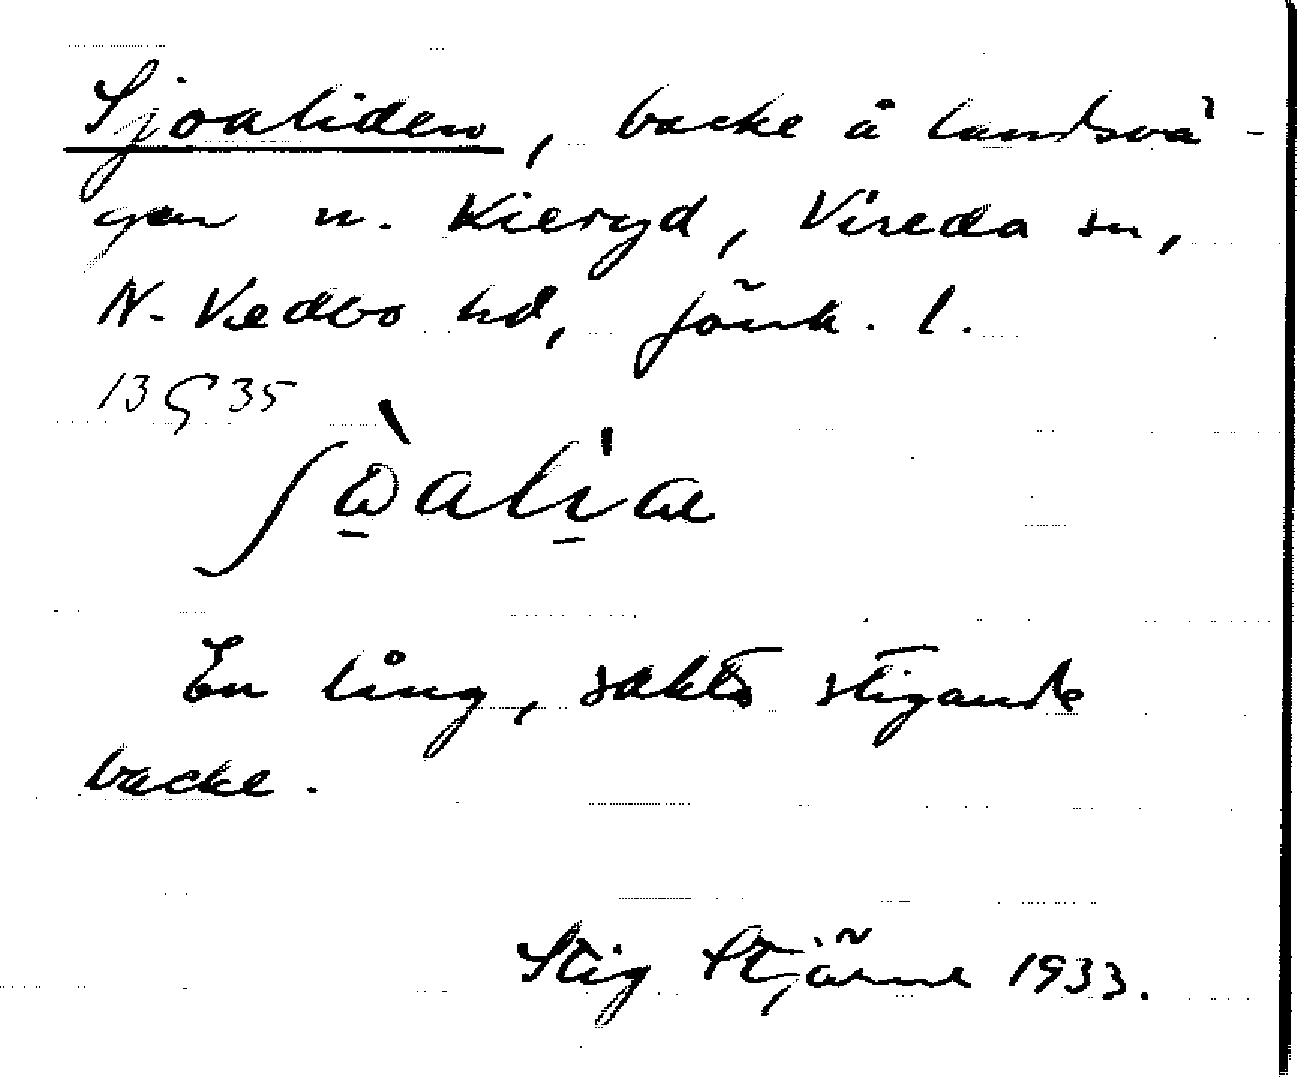 Sjoaliden, backe å landsvä-
gen n. Kieryd, Vireda sn,
N. Vedbo hd, Jönk. l.
13 G 35
En lång, sakta stigande
backe.
Stig Stjärne 1933.